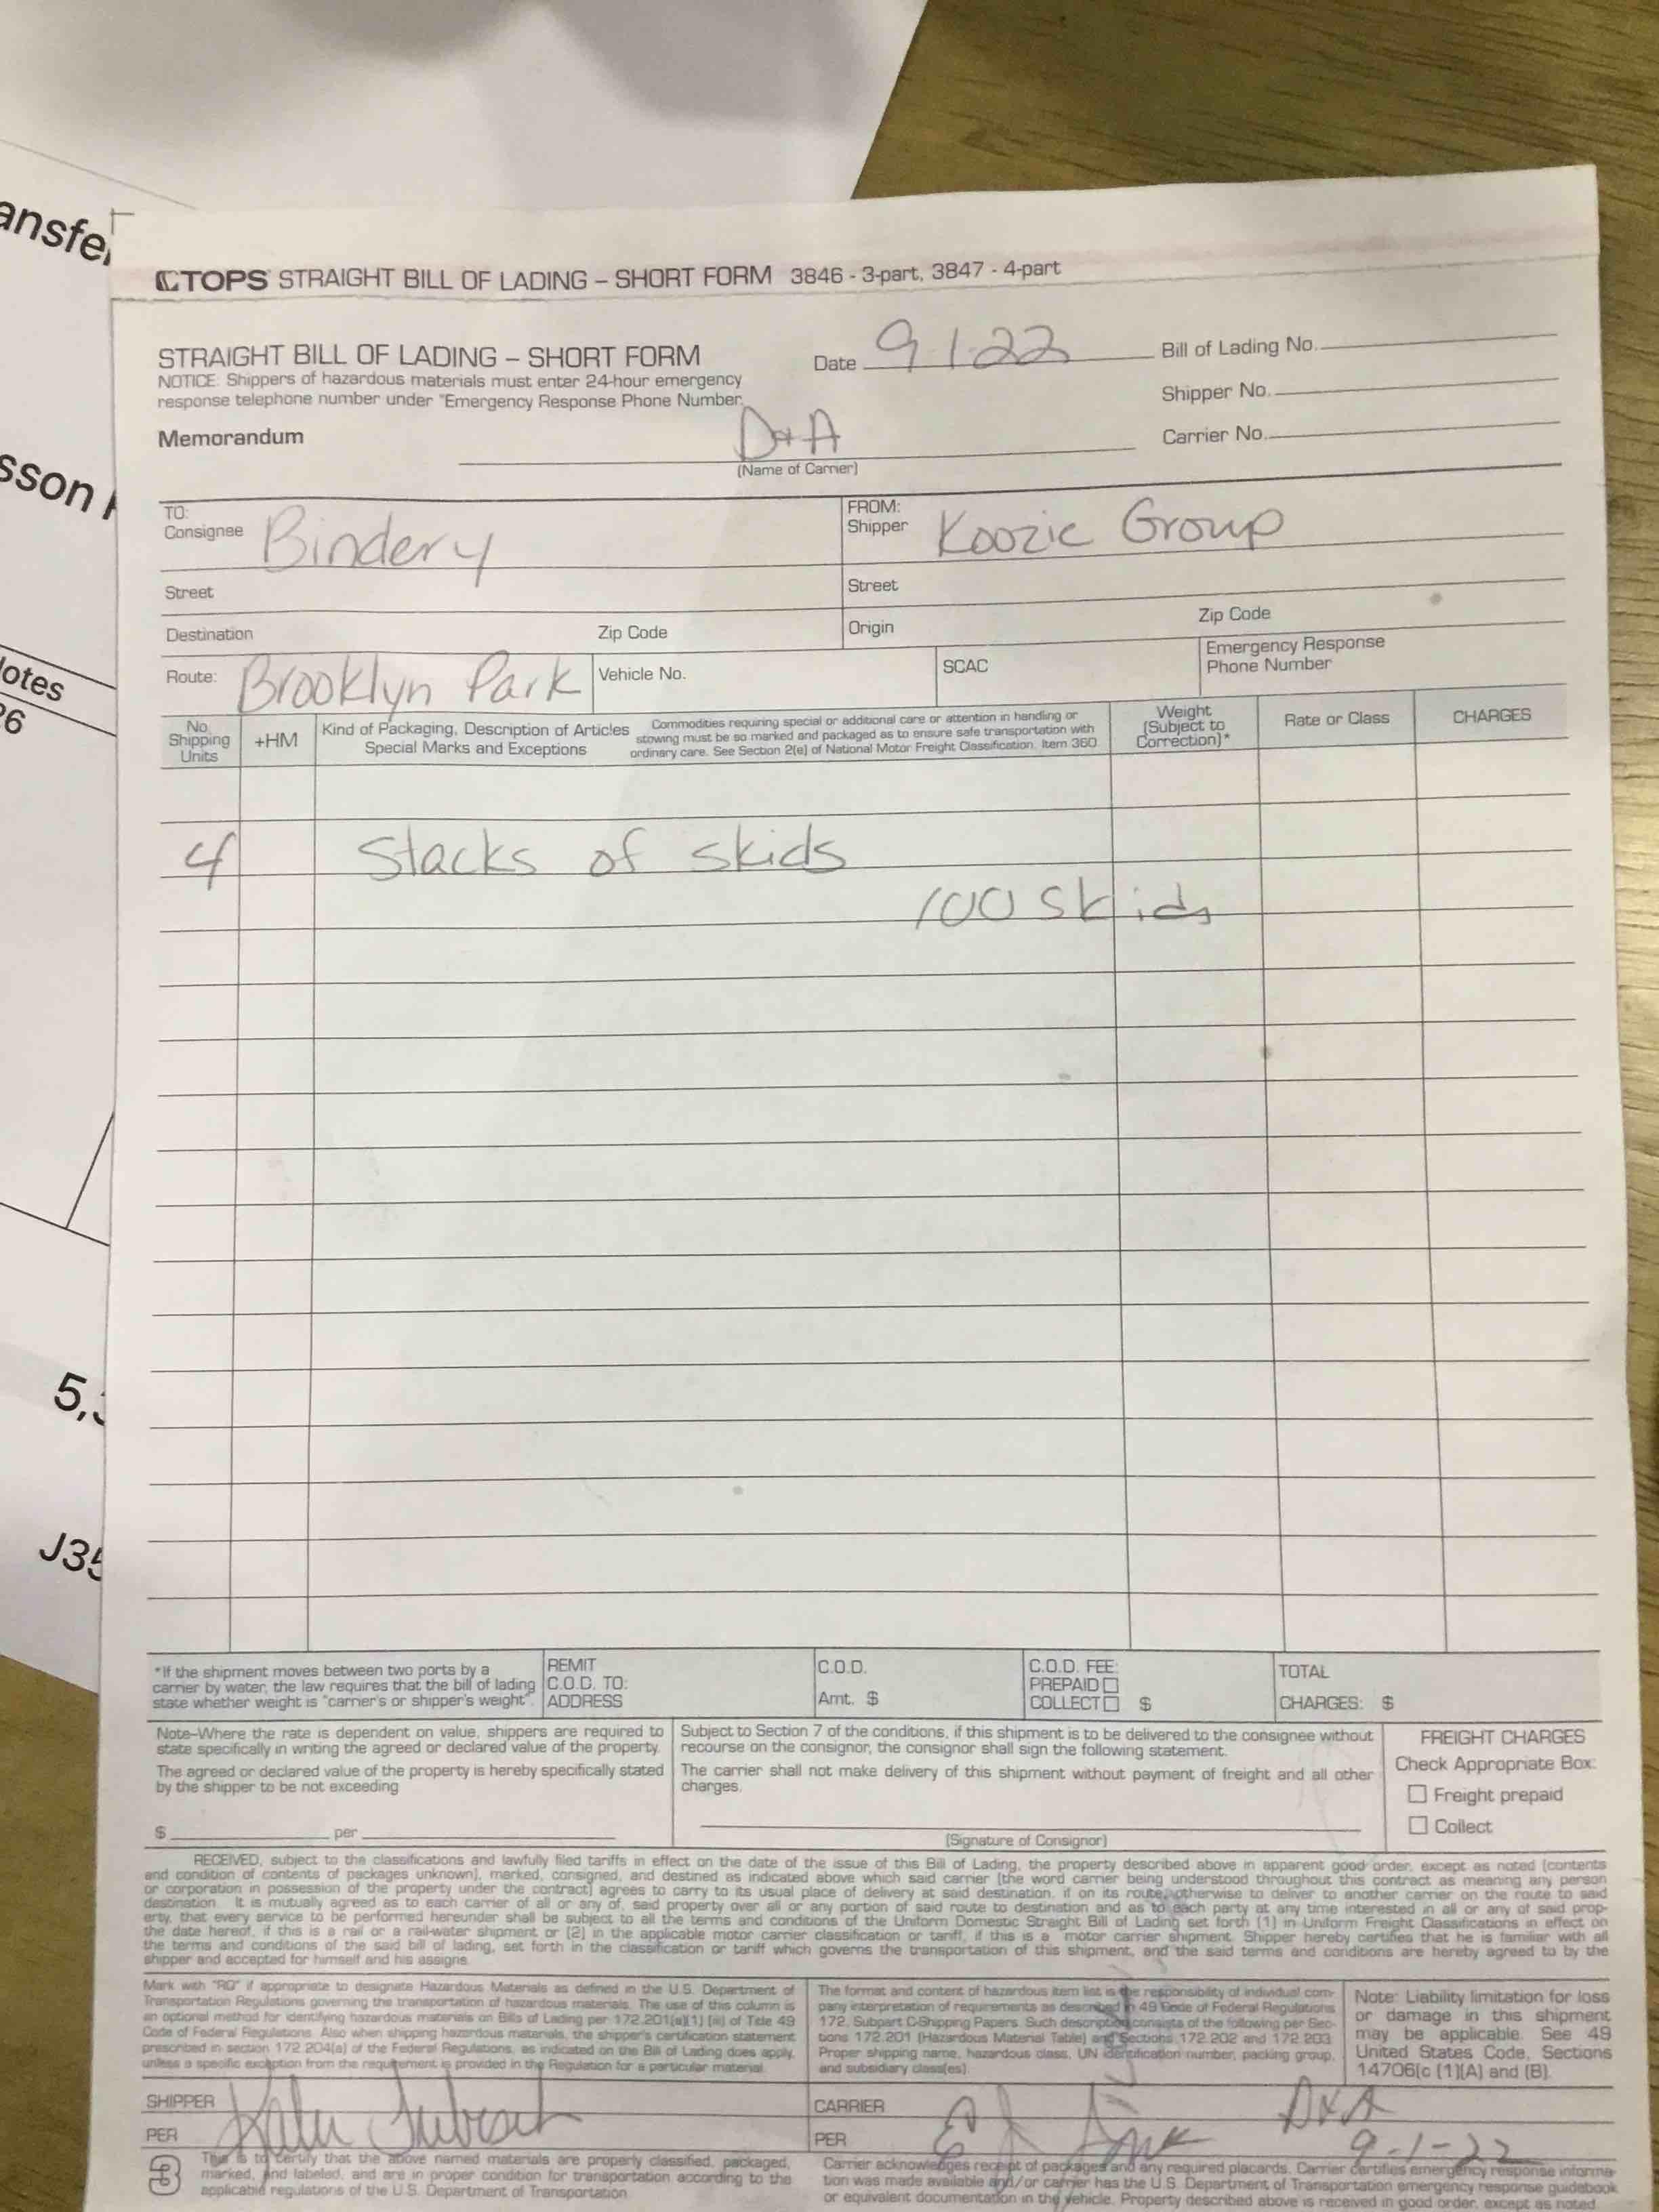 ansfe
sson
lotes
26
5,
J35
TOPS STRAIGHT BILL OF LADING – SHORT FORM 3846 - 3-part, 3847 - 4-part
STRAIGHT BILL OF LADING – SHORT FORM
NOTICE: Shippers of hazardous materials must enter 24-hour emergency
response telephone number under "Emergency Response Phone Number.
Date 9-1-22
Bill of Lading No.
Shipper No.
Carrier No.
Memorandum
D+A
(Name of Carrier)
TO:
Consignee Bindery
FROM:
Shipper Koozie Group
Street
Street
Destination Zip Code
Origin Zip Code
Route: Brooklyn Park
Vehicle No.
SCAC
Emergency Response
Phone Number
No.
Shipping
Units
+HM
Kind of Packaging, Description of Articles
Special Marks and Exceptions
Commodities requiring special or additional care or attention in handling or
stowing must be so marked and packaged as to ensure safe transportation with
ordinary care. See Section 2(e) of National Motor Freight Classification, Item 360
Weight
(Subject to
Correction)*
Rate or Class
CHARGES
4 Stacks of skids
100 skids
*If the shipment moves between two ports by a
carrier by water, the law requires that the bill of lading
state whether weight is "carrier's or shipper's weight".
REMIT
C.O.D. TO:
ADDRESS
C.O.D.
Amt. $
C.O.D. FEE:
PREPAID
COLLECT $
TOTAL
CHARGES: $
Note–Where the rate is dependent on value, shippers are required to
state specifically in writing the agreed or declared value of the property.
The agreed or declared value of the property is hereby specifically stated
by the shipper to be not exceeding
$ per
Subject to Section 7 of the conditions, if this shipment is to be delivered to the consignee without
recourse on the consignor, the consignor shall sign the following statement.
The carrier shall not make delivery of this shipment without payment of freight and all other
charges.
(Signature of Consignor)
FREIGHT CHARGES
Check Appropriate Box:
Freight prepaid
Collect
RECEIVED, subject to the classifications and lawfully filed tariffs in effect on the date of the issue of this Bill of Lading, the property described above in apparent good order, except as noted (contents
and condition of contents of packages unknown), marked, consigned, and destined as indicated above which said carrier (the word carrier being understood throughout this contract as meaning any person
or corporation in possession of the property under the contract) agrees to carry to its usual place of delivery at said destination, if on its route, otherwise to deliver to another carrier on the route to said
destination. It is mutually agreed as to each carrier of all or any of, said property over all or any portion of said route to destination and as to each party at any time interested in all or any of said prop-
erty, that every service to be performed hereunder shall be subject to all the terms and conditions of the Uniform Domestic Straight Bill of Lading set forth (1) in Uniform Freight Classifications in effect on
the date hereof, if this is a rail or a rail-water shipment or (2) in the applicable motor carrier classification or tariff, if this is a motor carrier shipment. Shipper hereby certifies that he is familiar with all
the terms and conditions of the said bill of lading, set forth in the classification or tariff which governs the transportation of this shipment, and the said terms and conditions are hereby agreed to by the
shipper and accepted for himself and his assigns.
Mark with "RQ" if appropriate to designate Hazardous Materials as defined in the U.S. Department of
Transportation Regulations governing the transportation of hazardous materials. The use of this column is
an optional method for identifying hazardous materials on Bills of Lading per 172.201(a)(1) (iii) of Title 49
Code of Federal Regulations. Also when shipping hazardous materials, the shipper's certification statement
prescribed in section 172.204(a) of the Federal Regulations, as indicated on the Bill of Lading does apply,
unless a specific exception from the requirement is provided in the Regulation for a particular material.
The format and content of hazardous item list is the responsibility of individual com-
pany interpretation of requirements as described in 49 Code of Federal Regulations
172, Subpart C-Shipping Papers. Such description consists of the following per Sec-
tions 172.201 (Hazardous Material Table) and Sections 172.202 and 172.203:
Proper shipping name, hazardous class, UN identification number, packing group,
and subsidiary class(es).
Note: Liability limitation for loss
or damage in this shipment
may be applicable. See 49
United States Code, Sections
14706(c (1)(A) and (B).
SHIPPER
PER
CARRIER D+A
PER 9-1-22
3
This is to certify that the above named materials are properly classified, packaged,
marked, and labeled, and are in proper condition for transportation according to the
applicable regulations of the U.S. Department of Transportation
Carrier acknowledges receipt of packages and any required placards. Carrier certifies emergency response informa-
tion was made available and/or carrier has the U.S. Department of Transportation emergency response guidebook
or equivalent documentation in the vehicle. Property described above is received in good order, except as noted.